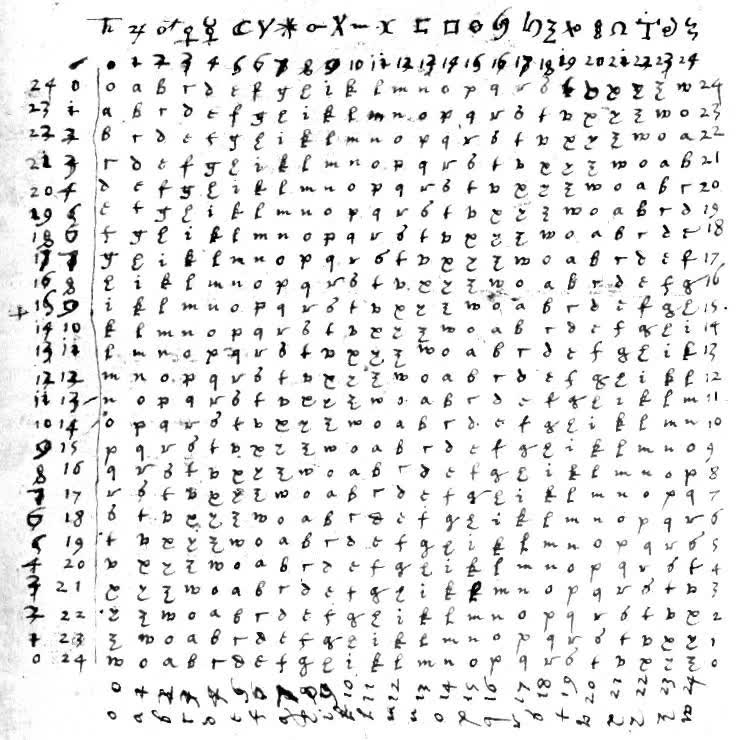 ♄ ♃ ♂ ♀ ☿ ☾
0 1 2 3 4 5 6 7 8 9 10 11 12 13 14 15 16 17 18 19 20 21 22 23 24
24 0 o a b c d e f g h i k l m n o p q r s t v x y z w 24
23 1 a b c d e f g h i k l m n o p q r s t v x y z w o 23
22 2 b c d e f g h i k l m n o p q r s t v x y z w o a 22
21 3 c d e f g h i k l m n o p q r s t v x y z w o a b 21
20 4 d e f g h i k l m n o p q r s t v x y z w o a b c 20
19 5 e f g h i k l m n o p q r s t v x y z w o a b c d 19
18 6 f g h i k l m n o p q r s t v x y z w o a b c d e 18
17 7 g h i k l m n o p q r s t v x y z w o a b c d e f 17
16 8 h i k l m n o p q r s t v x y z w o a b c d e f g 16
15 9 i k l m n o p q r s t v x y z w o a b c d e f g h 15
14 10 k l m n o p q r s t v x y z w o a b c d e f g h i 14
13 11 l m n o p q r s t v x y z w o a b c d e f g h i k 13
12 12 m n o p q r s t v x y z w o a b c d e f g h i k l 12
11 13 n o p q r s t v x y z w o a b c d e f g h i k l m 11
10 14 o p q r s t v x y z w o a b c d e f g h i k l m n 10
9 15 p q r s t v x y z w o a b c d e f g h i k l m n o 9
8 16 q r s t v x y z w o a b c d e f g h i k l m n o p 8
7 17 r s t v x y z w o a b c d e f g h i k l m n o p q 7
6 18 s t v x y z w o a b c d e f g h i k l m n o p q r 6
5 19 t v x y z w o a b c d e f g h i k l m n o p q r s 5
4 20 v x y z w o a b c d e f g h i k l m n o p q r s t 4
3 21 x y z w o a b c d e f g h i k l m n o p q r s t v 3
2 22 y z w o a b c d e f g h i k l m n o p q r s t v x 2
1 23 z w o a b c d e f g h i k l m n o p q r s t v x y 1
0 24 w o a b c d e f g h i k l m n o p q r s t v x y z 0
0 1 2 3 4 5 6 7 8 9 10 11 12 13 14 15 16 17 18 19 20 21 22 23 24